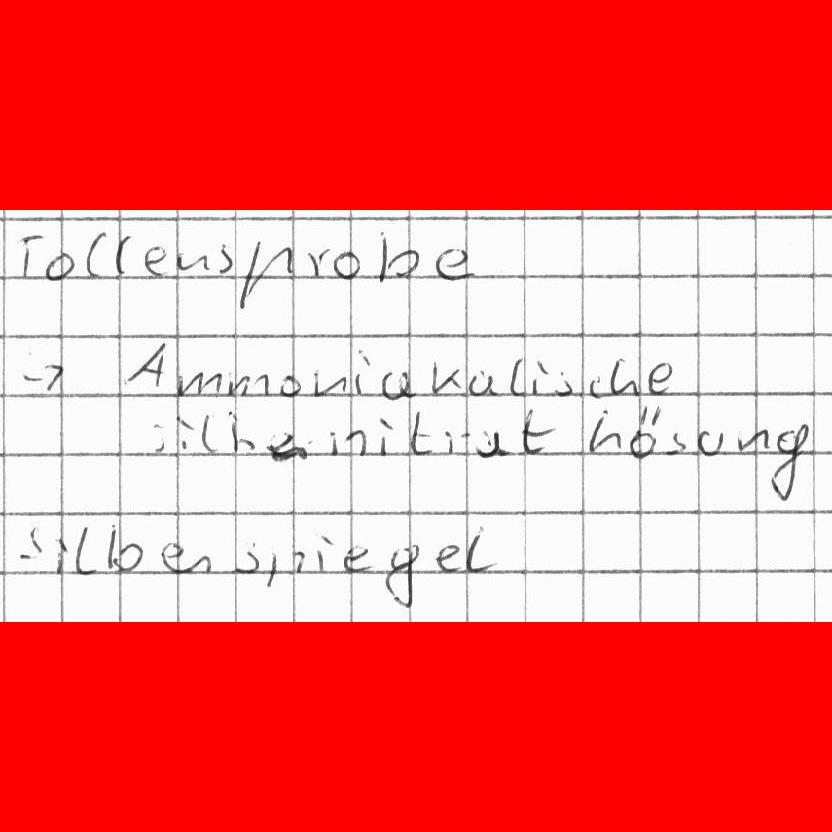 Tollensprobe
→ Ammoniakalische
silbernitrat lösung
Silberspiegel